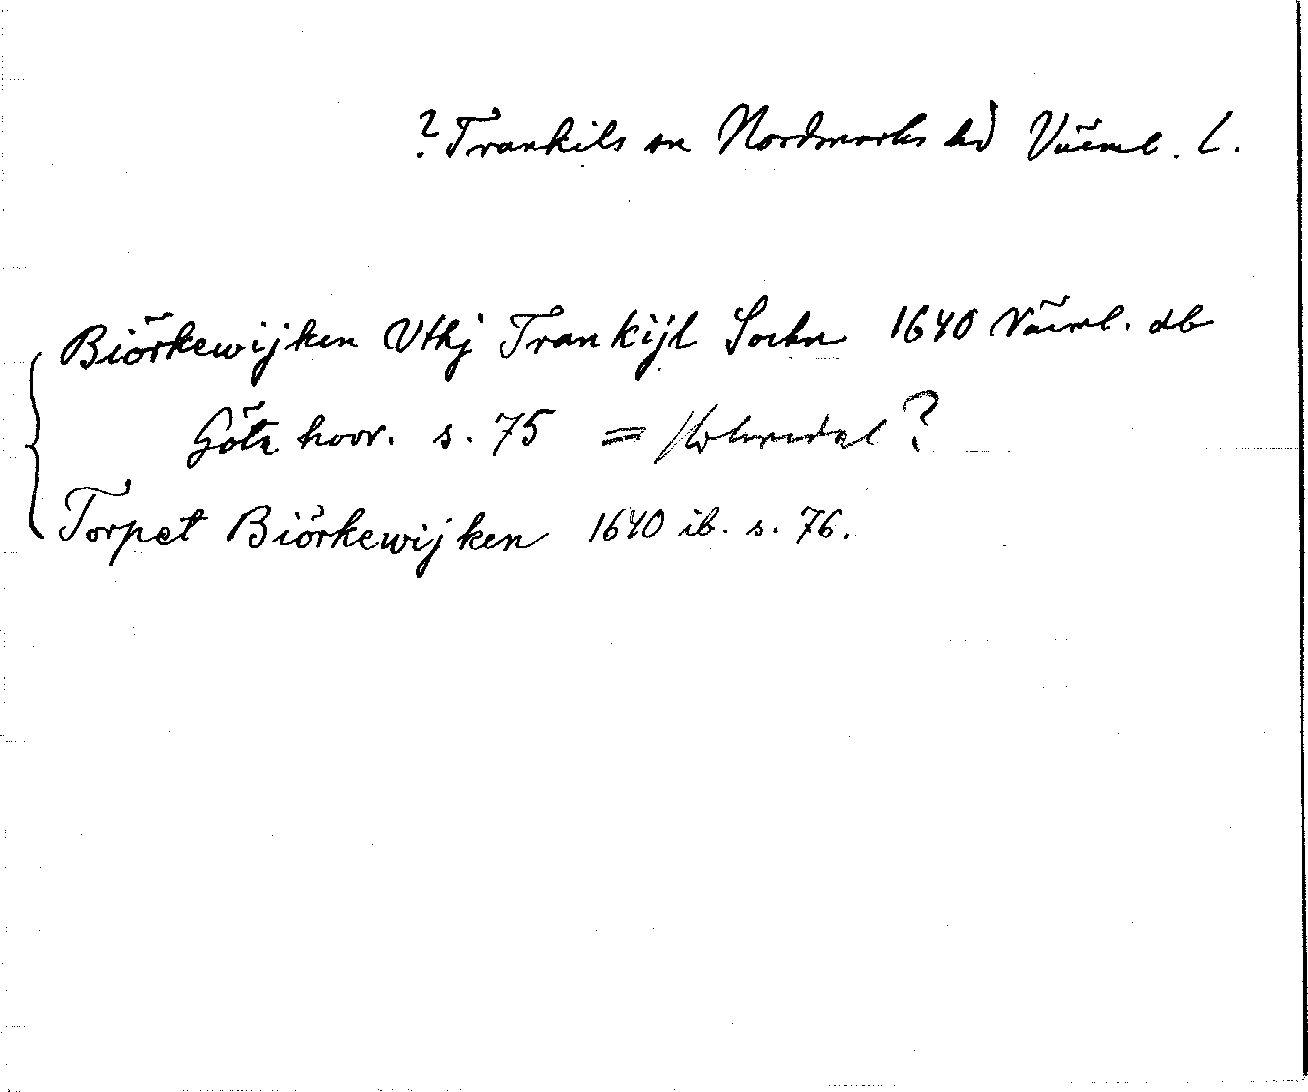 ? Trankils sn Nordmarks hd Värml. L.
Biörkewijken Vthj Trankijl Sochn 1640 Värml. db
Göta hovr. s. 75 = ?
Torpet Biörkewijken 1640 ib. s. 76.